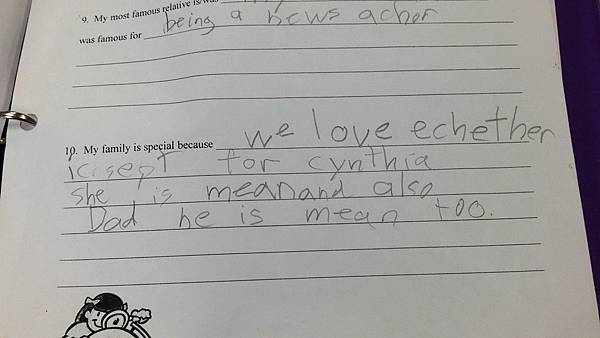 9. My most famous relative is/was
was famous for being a news achor
10. My family is special because we love echether
icisept for cynthia
she is mean and also
Dad he is mean too.